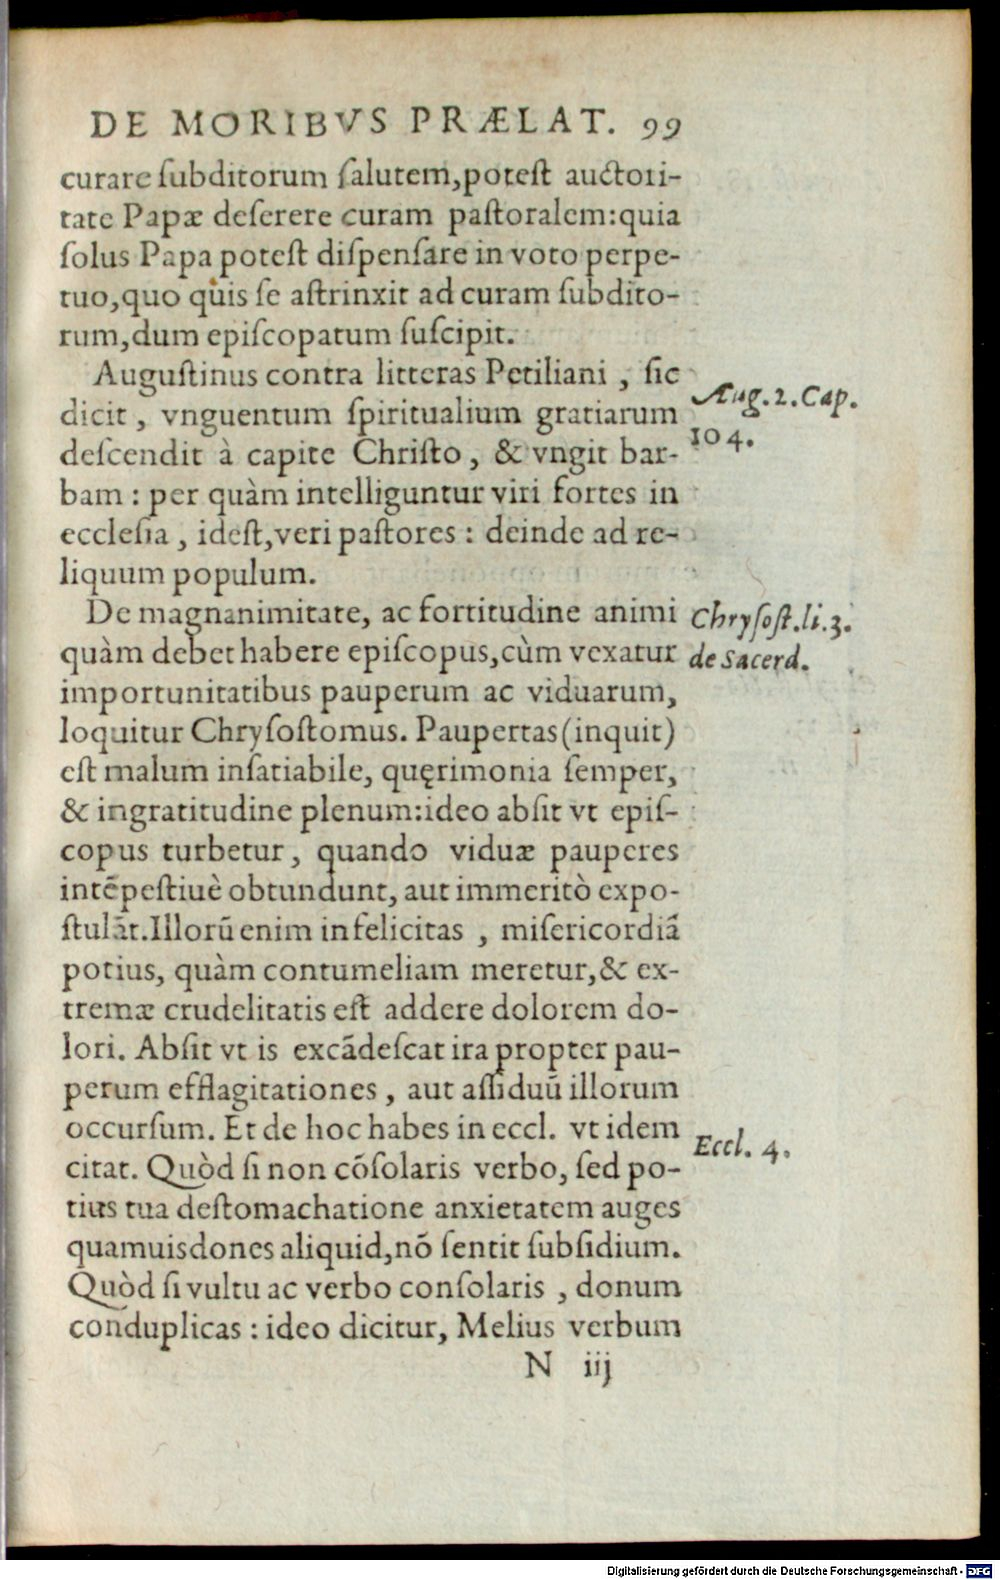 DE MORIBVS PRÆLAT. 99
curare ſubditorum ſalutem,poteſt auctori-
tate Papæ deſerere curam paſtoralem:quia
ſolus Papa poteſt diſpenſare in voto perpe-
tuo,quo quis ſe aſtrinxit ad curam ſubdito-
rum,dum epiſcopatum ſuſcipit.
Auguſtinus contra litteras Petiliani , ſic
Aug.2.Cap.
dicit , vnguentum ſpiritualium gratiarum
104.
deſcendit à capite Chriſto , & vngit bar-
bam : per quàm intelliguntur viri fortes in
eccleſia , ideſt,veri paſtores : deinde ad re-
liquum populum.
De magnanimitate, ac fortitudine animi
Chryſoſt.li.3.
quàm debet habere epiſcopus,cùm vexatur
de Sacerd.
importunitatibus pauperum ac viduarum,
loquitur Chryſoſtomus. Paupertas(inquit)
eſt malum inſatiabile, quęrimonia ſemper,
& ingratitudine plenum:ideo abſit vt epiſ-
copus turbetur , quando viduæ pauperes
intēpeſtiuè obtundunt, aut immeritò expo-
ſtulāt.Illorū enim infelicitas , miſericordiā
potius, quàm contumeliam meretur,& ex-
tremæ crudelitatis eſt addere dolorem do-
lori. Abſit vt is excādeſcat ira propter pau-
perum efflagitationes , aut aſſiduū illorum
occurſum. Et de hoc habes in eccl. vt idem
Eccl. 4.
citat. Quòd ſi non cōſolaris verbo, ſed po-
tius tua deſtomachatione anxietatem auges
quamuis dones aliquid,nō ſentit ſubſidium.
Quòd ſi vultu ac verbo conſolaris , donum
conduplicas : ideo dicitur, Melius verbum
N iij
Digitalisierung gefördert durch die Deutsche Forschungsgemeinschaft - DFG